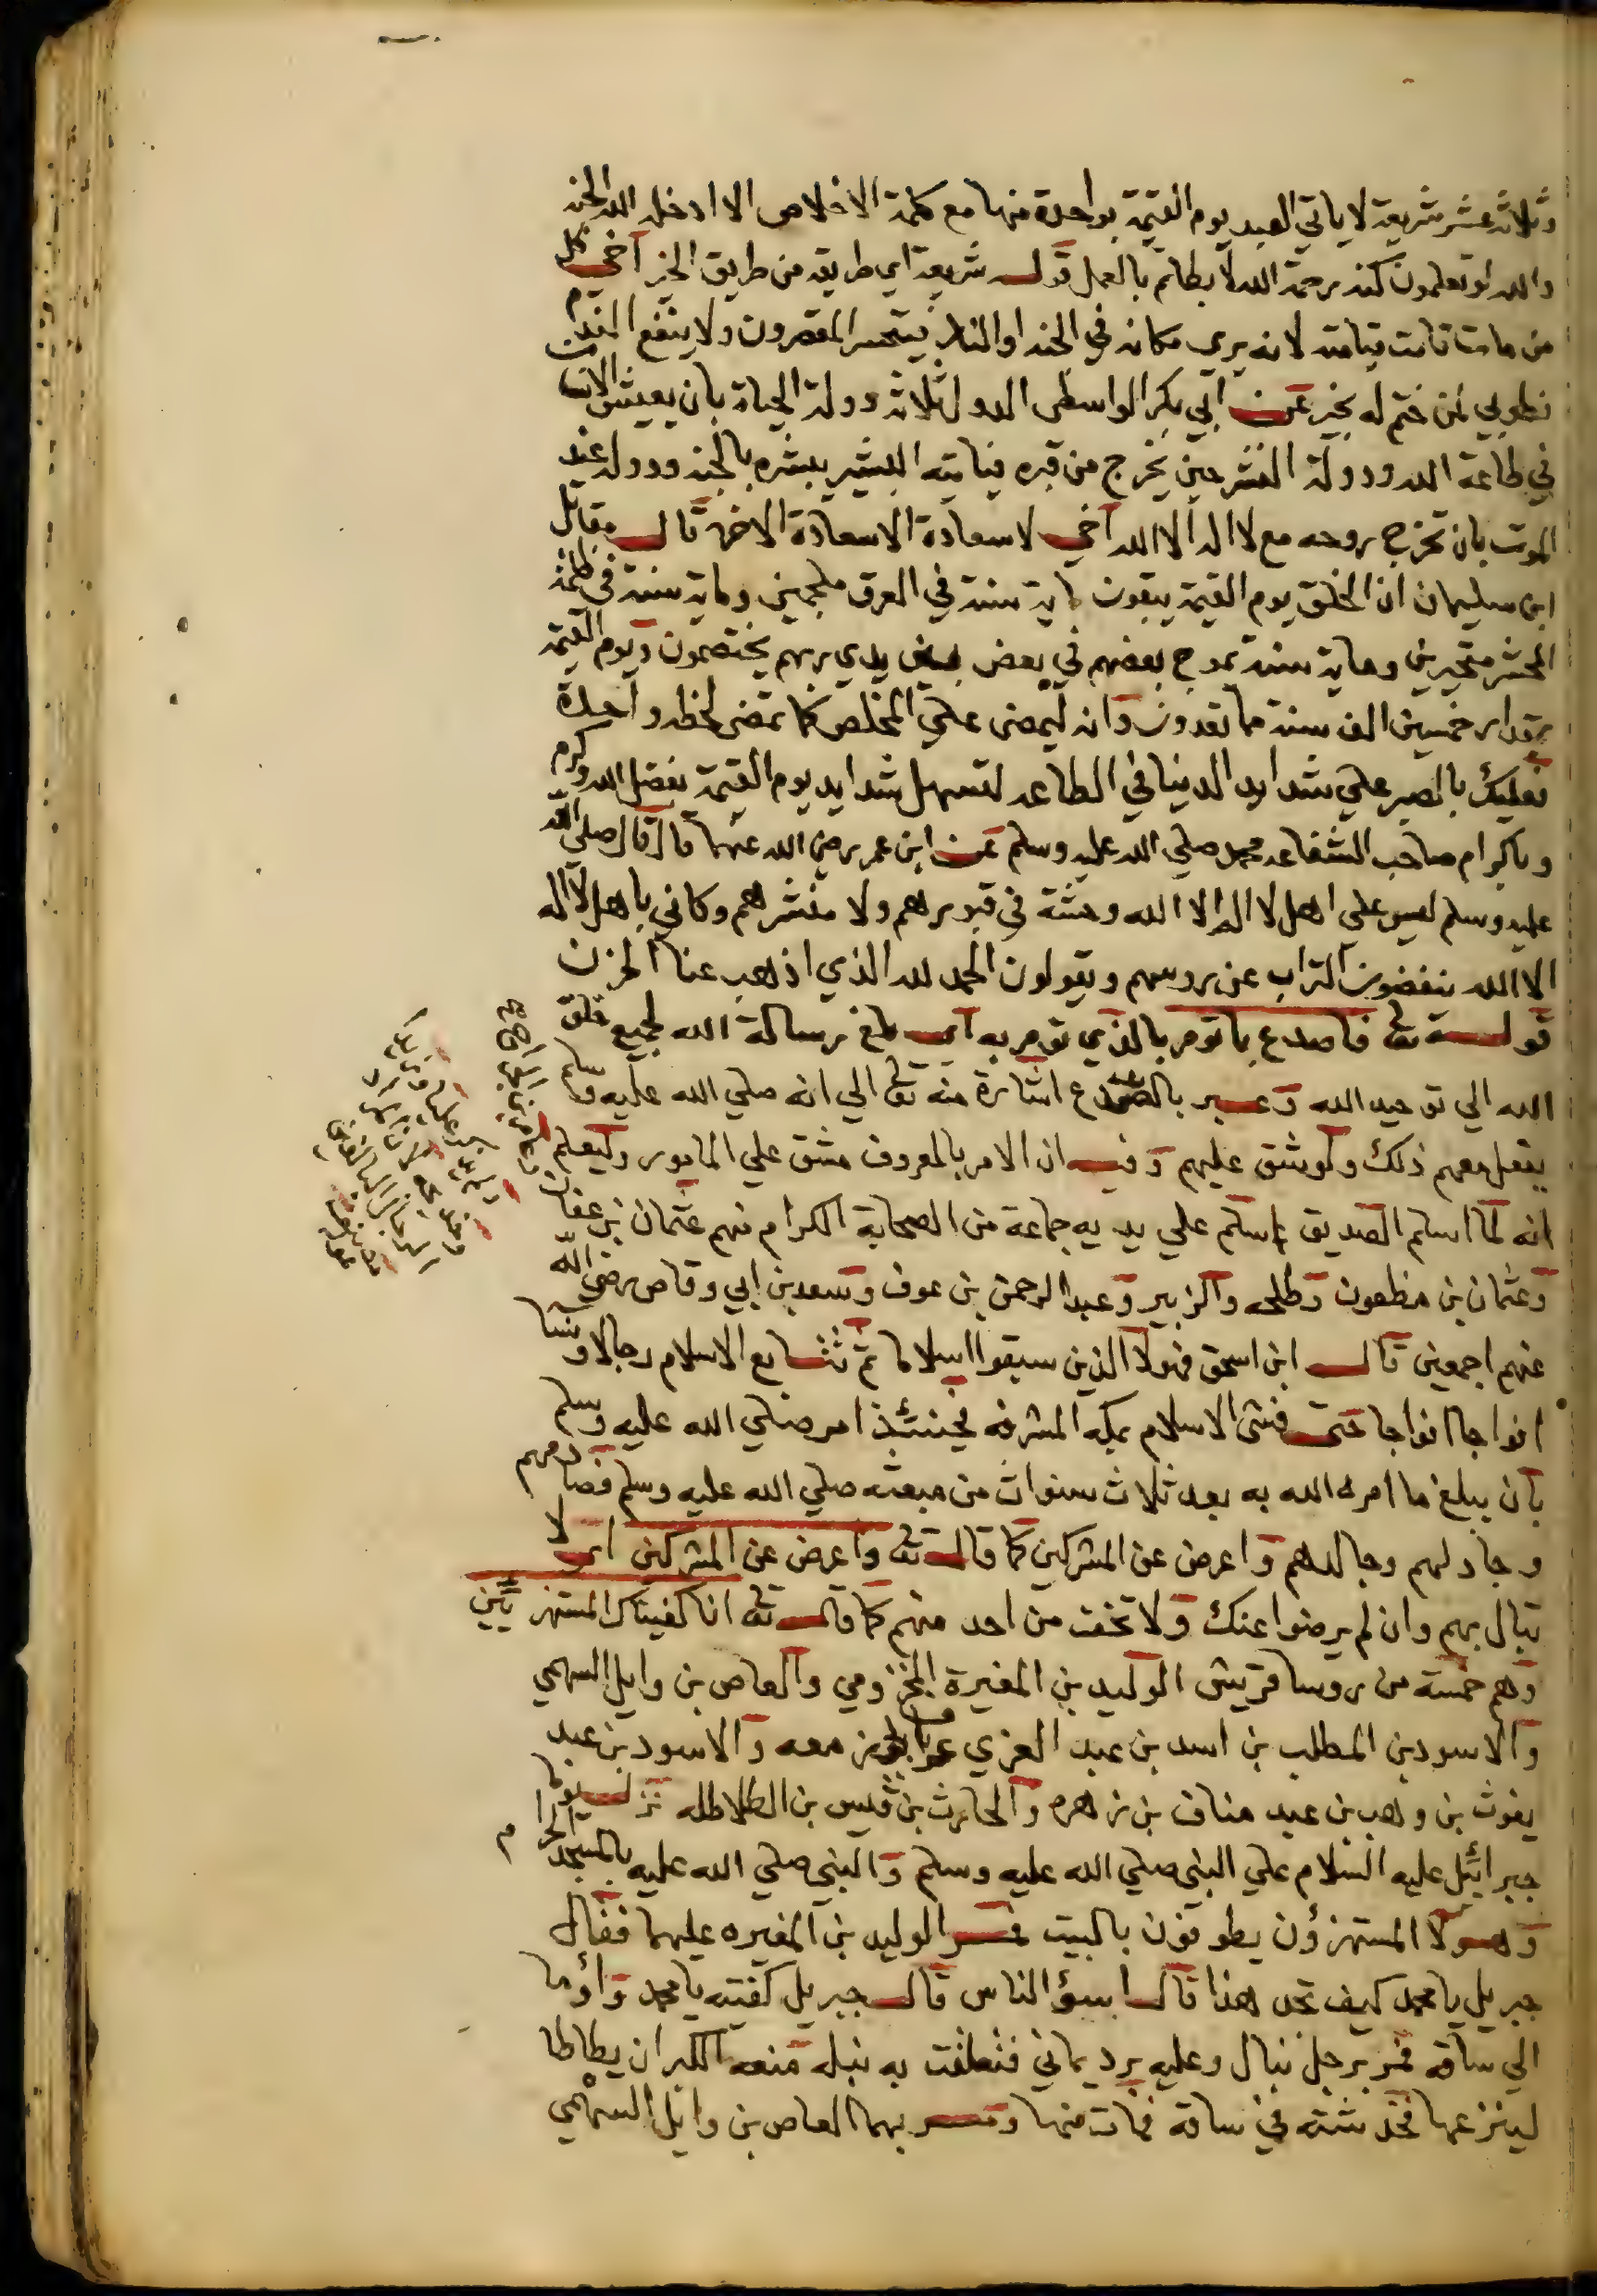 وثلاثه عشر شريعة لا ياتي العبد يوم القيمة بواحدة منها مع كلمة الاخلاص الا ادخله الله الجنه
والله لو تعلمون كنه رحمة الله لا بطاتم بالعمل قوله شريعة اي طريقه من طريق الخير اخي كل
من مات قامت قيامته لانه يري مكانه في الجنه او النار فيتحسر المقصرون ولا ينفع الندم
فطوبي لمن ختم له بخير عن ابي بكر الواسطي الدول ثلاثه دولة الحياة بان يعيش الانسان
في طاعة الله ودولة النشر حين يخرج من قبره فياتيه البشير يبشره بالجنه ودولة عند
الموت بان تخرج روحه مع لا اله الا الله اخي لا سعادة الا سعادة الاخره قال مقاتل
ابن سليمان ان الخلق يوم القيمة يبقون ماية سنة في العرق ملجمين وماية سنة في ظلمة
المحشر متحيرين وماية سنة يموج بعضهم في بعض بين يدي ربهم يختصمون ويوم القيمة
بمقدار خمسين الف سنة مما تعدون وانه ليمضي علي المخلص كما تمضي لحظه واحدة
فعليك بالصبر علي شدايد الدنيا في الطاعه لتسهل شدايد يوم القيمة بفضل الله وكرمه
وباكرام صاحب الشفاعه محمد صلي الله عليه وسلم عن ابن عمر رضي الله عنهما قال قال صلي الله
عليه وسلم ليس علي اهل لا اله الا الله وحشة في قبورهم ولا منشرهم وكاني باهل لا اله
الا الله ينفضون التراب عن روسهم ويقولون الحمد لله الذي اذهب عنا الحزن
قوله تعا فاصدع بما تومر بالذي تومر به اي بلغ رسالة الله لجميع خلق
الله الي توحيد الله وعبر بالصدع اشارة منه تعا الي انه صلي الله عليه وسلم
يفعل معهم ذلك ولو شق عليهم وفيه ان الامر بالمعروف مشق علي المامور وليعلم
انه لما اسلم الصديق اسلم علي يديه جماعة من الصحابة الكرام منهم عثمان بن عفان
وعثمان بن مظعون وطلحه والزبير وعبد الرحمن بن عوف وسعد بن ابي وقاص رضي الله
عنهم اجمعين قال ابن اسحق فهولا الذين سبقوا اسلاما ثم تتابع الاسلام رجالا ونسا
افواجا افواجا حتي فشي الاسلام بمكه المشرفه فحينئذ امر صلي الله عليه وسلم
بان يبلغ ما امره الله به بعد ثلاث سنوات من مبعثه صلي الله عليه وسلم فصادمهم
وجادلهم وجالدهم واعرض عن المشركين كما قال تعا واعرض عن المشركين اي لا
تبال بهم وان لم يرضوا عنك ولا تخف من احد منهم كما قال تعا انا كفيناك المستهزئين
وهم خمسة من روسا قريش الوليد بن المغيرة المخزومي والعاص بن وايل السهمي
والاسود بن المطلب بن اسد بن عبد العزي معه والاسود بن عبد
يغوث بن وهب بن عبد مناف بن زهره والحارث بن قيس بن الطلاطله نزل يوما
جبرائيل عليه السلام علي النبي صلي الله عليه وسلم والنبي صلي الله عليه بالمسجد الحرام
وهولا المستهزؤن يطوفون بالبيت فمر الوليد بن المغيره عليهما فقال
جبريل يا محمد كيف تجد هذا قال ابسؤ الناس قال جبريل كفيته يا محمد واؤما
الي ساقه فمر برجل نبال وعليه برد يماني فتعلقت به نبله منعه الكبر ان يطاطا
لينزعها فخدشته في ساقه فمات منها ومر بهما العاص بن وائل السهمي